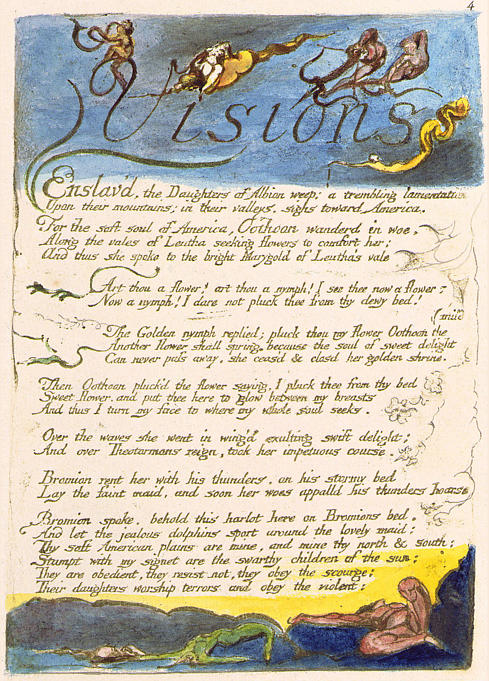 4
Visions
Enslav'd, the Daughters of Albion weep; a trembling lamentation
Upon their mountains; in their valleys, sighs toward America.
For the soft soul of America, Oothoon wanderd in woe,
Along the vales of Leutha seeking flowers to comfort her;
And thus she spoke to the bright Marygold of Leutha's vale
Art thou a flower! art thou a nymph! I see thee now a flower;
Now a nymph! I dare not pluck thee from thy dewy bed!
The Golden nymph replied; pluck thou my flower Oothoon the mild
Another flower shall spring, because the soul of sweet delight
Can never pass away. she ceas'd & clos'd her golden shrine.
Then Oothoon pluck'd the flower saying, I pluck thee from thy bed
Sweet flower. and put thee here to glow between my breasts
And thus I turn my face to where my whole soul seeks.
Over the waves she went in wing'd exulting swift delight;
And over Theotormons reign, took her impetuous course.
Bromion rent her with his thunders. on his stormy bed
Lay the faint maid, and soon her woes appalld his thunders hoarse
Bromion spoke. behold this harlot here on Bromions bed,
And let the jealous dolphins sport around the lovely maid;
Thy soft American plains are mine, and mine thy north & south;
Stampt with my signet are the swarthy children of the sun;
They are obedient, they resist not, they obey the scourge;
Their daughters worship terrors and obey the violent;